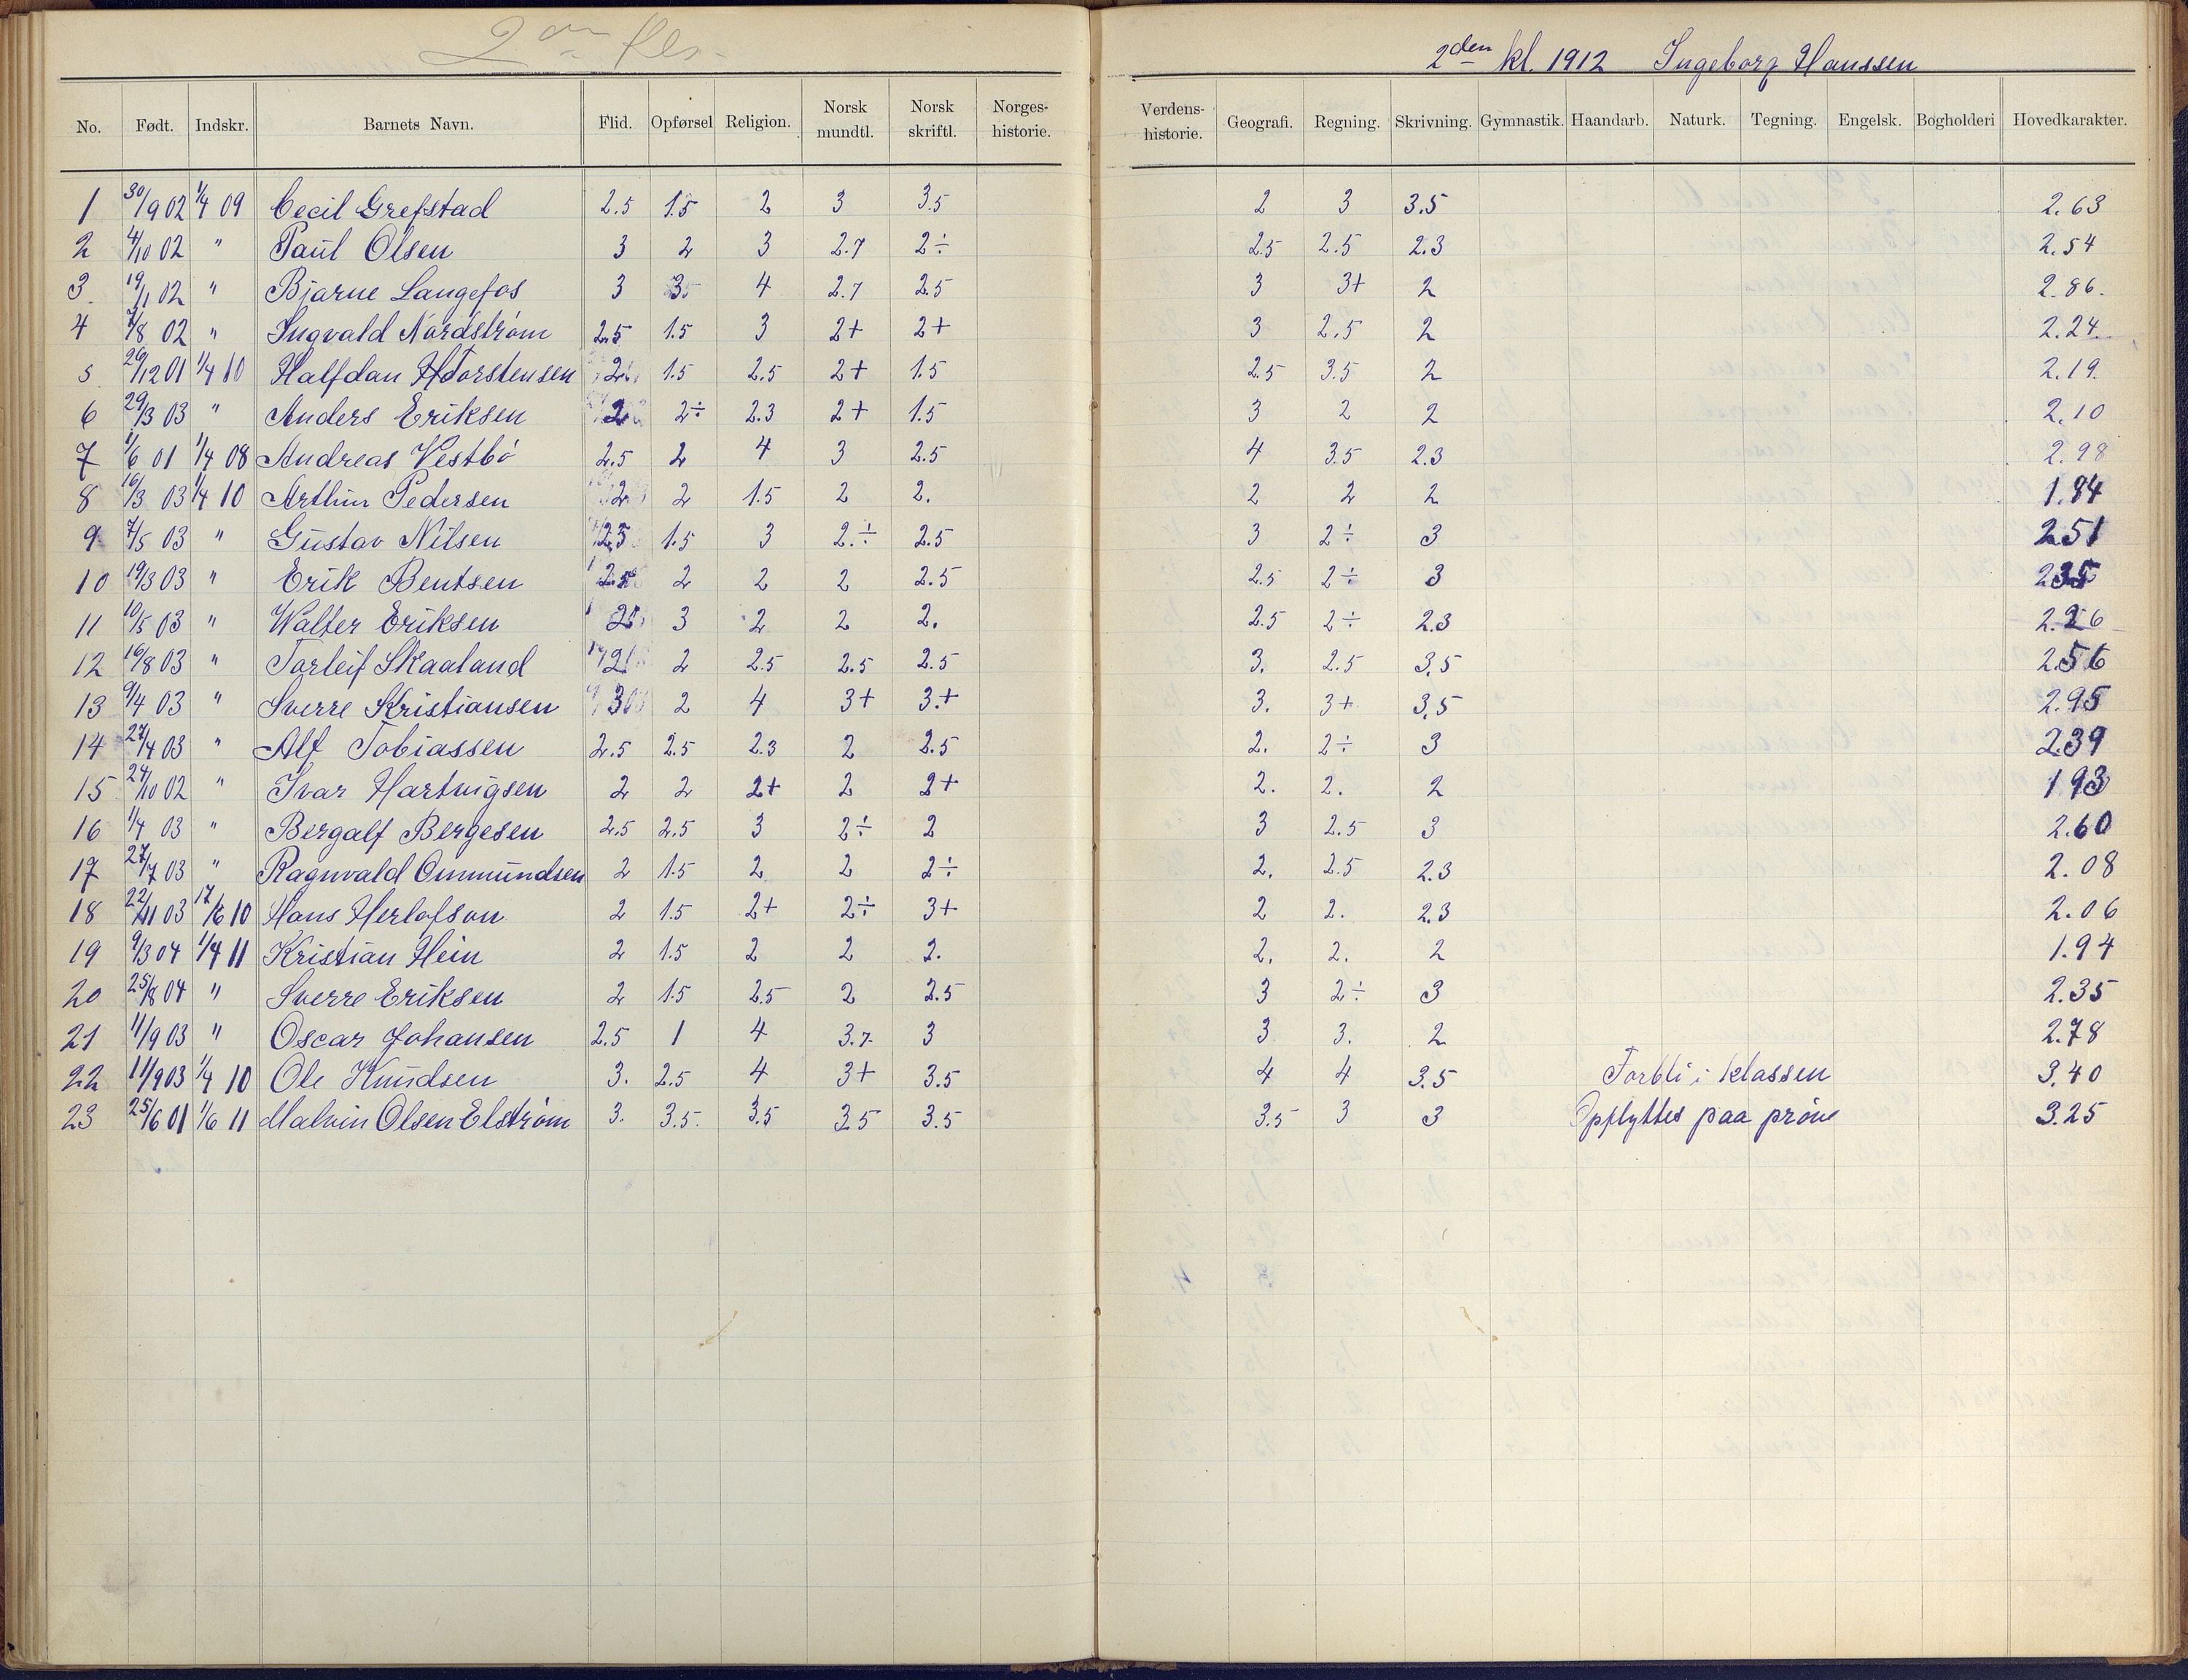 2den kl. 1912 Ingeborg Hanssen
No. Født. Indskr. Barnets Navn. Flid. Opførsel Religion. Norsk mundtl. Norsk skriftl. Norges-historie. Verdens-historie. Geografi. Regning. Skrivning. Gymnastik. Haandarb. Naturk. Tegning. Engelsk. Bogholderi Hovedkarakter.
1 30/9 02 1/4 09 Cecil Grefstad 2.5 1.5 2 3 3.5 2 3 3.5 2.63
2 4/10 02 " Paul Olsen 3 2 3 2.7 2÷ 2.5 2.5 2.3 2.54
3. 19/1 02 " Bjarne Langefos 3 3.5 4 2.7 2.5 3 3+ 2 2.86.
4 7/8 02 " Ingvald Nordstrøm 2.5 1.5 3 2+ 2+ 3 2.5 2 2.24
5 26/12 01 1/4 10 Halfdan Thorstensen 2 1.5 2.5 2+ 1.5 2.5 3.5 2 2.19
6 29/3 03 " Anders Eriksen 2 2÷ 2.3 2+ 1.5 3 2 2 2.10
7 1/6 01 1/4 08 Andreas Vestbö 2.5 2 4 3 2.5 4 3.5 2.3 2.98
8 16/3 03 1/4 10 Arthur Pedersen 2 2 1.5 2 2. 2 2 2 1.94
9 7/5 03 " Gustav Nilsen 2.5 1.5 3 2.÷ 2.5 3 2÷ 3 2.51
10 19/3 03 " Erik Bentsen 2.5 2 2 2 2.5 2.5 2÷ 3 2.35
11 10/5 03 " Walter Eriksen 2 3 2 2 2. 2.5 2÷ 2.3 2.26
12 16/8 03 " Torleif Skaaland 2 2 2.5 2.5 2.5 3. 2.5 3.5 2.56
13 9/4 03 " Sverre Kristiansen 3 2 4 3+ 3.+ 3. 3+ 3.5 2.95
14 27/4 03 " Alf Tobiassen 2.5 2.5 2.3 2 2.5 2. 2÷ 3 2.39
15 24/10 02 " Ivar Hartvigsen 2 2 2+ 2 2+ 2. 2. 2 1.93
16 1/4 03 " Bergalf Bergesen 2.5 2.5 3 2÷ 2 3 2.5 3 2.60
17 27/7 03 " Ragnvald Ommundsen 2 1.5 2 2 2÷ 2. 2.5 2.3 2.08
18 22/11 03 17/6 10 Hans Herlofson 2 1.5 2+ 2÷ 3+ 2 2. 2.3 2.06
19 9/3 04 1/4 11 Kristian Hein 2 1.5 2 2 2. 2. 2. 2 1.94
20 25/8 04 " Sverre Eriksen 2 1.5 2.5 2 2.5 3 2÷ 3 2.35
21 11/9 03 " Oscar Johansen 2.5 1 4 3.7 3 3 3. 2 2.78
22 11/9 03 1/4 10 Ole Knudsen 3. 2.5 4 3+ 3.5 4 4 3.5 Forbli i klassen 3.40
23 25/6 01 1/6 11 Malvin Olsen Elstrøm 3. 3.5. 3.5 3.5 3.5 3.5 3 3 Opflyttes paa prøve 3.25